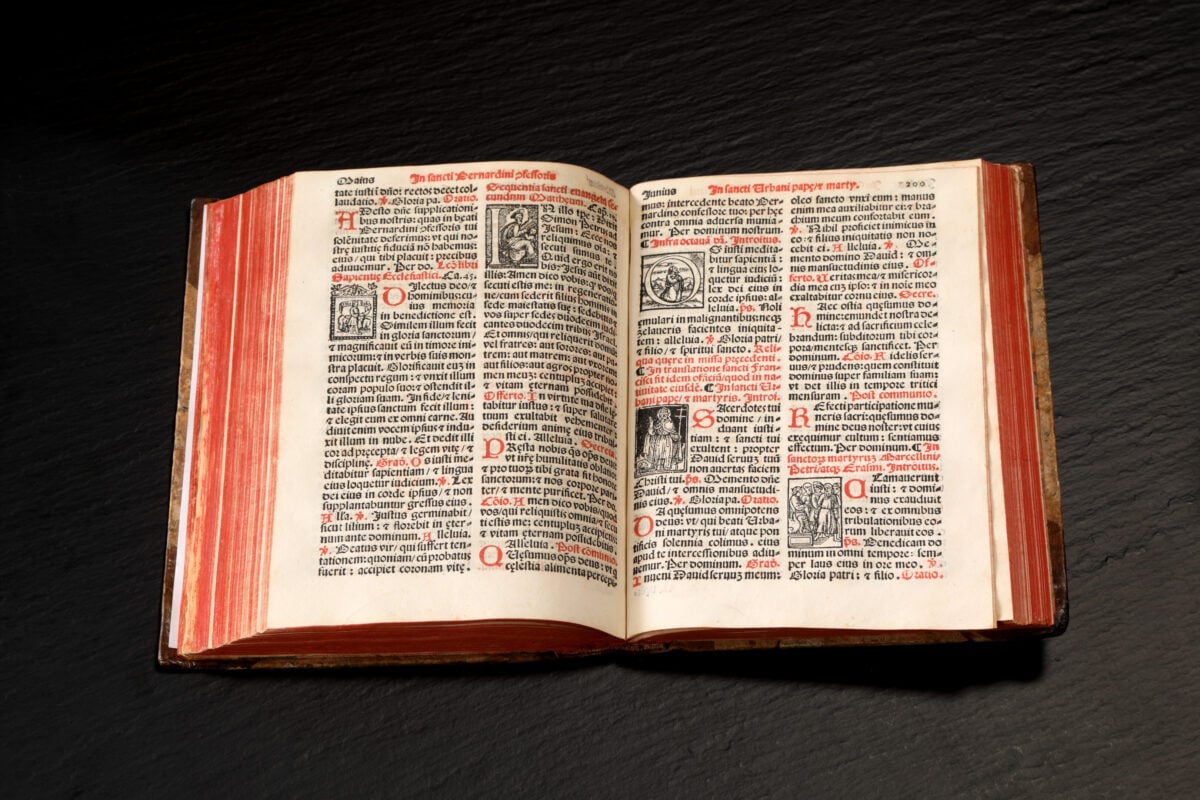 Maius In sancti Bernardini ꝯfessoris
tate iusti dñe: rectos decet col-
laudatio. ℣. Gloria pa. Oratio.
ADesto dñe supplicationi-
bus nostris: quas in beati
Bernardini ꝯfessoris tui
solẽnitate deferimus: vt qui no-
stre iustitie fiduciã nõ habemus:
eius/ qui tibi placuit: precibus
adiuuemur. Per do. Lectio libri
Sapientie Ecclesiastici. Ca. 45.
DIlectus deo/ &
hominibus: cu-
ius memoria
in benedictione est.
Similem illum fecit
in gloria sanctorum/
& magnificauit eũ in timore ini-
micorum: & in verbis suis mon-
stra placuit. Glorificauit eum in
conspectu regum: & iussit illi
coram populo suo: & ostendit il-
li gloriam suam. In fide/ & leni-
tate ipsius sanctum fecit illum:
& elegit eum ex omni carne. Au
diuit enim vocem ipsius: & indu-
xit illum in nube. Et dedit illi
cor ad precepta/ & legem vitę/ &
disciplinę. Grad. Os iusti me-
ditabitur sapientiam/ & lingua
eius loquetur iudicium. ℣. Lex
dei eius in corde ipsius/ & non
supplantabuntur gressus eius.
Alla. ℣. Iustus germinabit/
sicut lilium: & florebit in eter-
num ante dominum. Alleluia.
℣. Beatus vir/ qui suffert ten-
tationem: quoniam cũ probatus
fuerit: accipiet coronam vitę.
Sequentia sancti euangelij se-
cundum Mattheum. Cap.
IN illo tpe: Dixit
Simon Petrus ad
Iesum: Ecce nos
reliquimus omnia/ &
secuti sumus te:
Quid ergo erit no-
bis: Jesus aũt dixit
illis: Amen dico vobis: ꝙ vos/ qui
secuti estis me: in regeneratio-
ne/ cum sederit filius hominis in
sede maiestatis suę: sedebitis &
vos super sedes duodecim iudi-
cantes duodecim tribus Israel.
Et omnis/ qui reliquerit domũ
vel fratres: aut sorores: aut pa-
trem: aut matrem: aut vxorem
aut filios: aut agros: propter no-
men meũ: centuplũ accipiet:
& vitam eternam possidebit.
Offerto. In virtute tua dñe lę-
tabitur iustus: & super salutare
tuum exultabit vehementer:
desiderium animę eius tribui-
sti ei. Alleluia. Secreta.
PRęsta nobis qs ops deus:
vt nrę humilitatis oblatio
& pro tuorũ tibi grata sit honore
sanctorum: & nos corpore pari-
ter/ & mente purificet. Per do.
Cõio. Amen dico vobis/ quod
vos/ qui reliquistis omnia/ & secu-
ti estis me: centuplũ accipietis:
& vitam eternam possidebitis.
Alleluia. Post communio.
QUesumus ops deus: vt qui
cęlestia alimenta percepi-
Junius In sancti Urbani papę/ & marty. 200
mus: intercedente beato Ber-
nardino confessore tuo: per hęc
contra omnia aduersa munia-
mur. Per dominum nostrum.
Infra octauã dñi. Introitus.
OS iusti medita-
bitur sapientiã:
& lingua eius lo-
quetur iudiciũ:
lex dei eius in
corde ipsius: al-
leluia. ps. Noli
emulari in malignantibus: neqʒ
zelaueris facientes iniquita-
tem. alleluia. ℣. Gloria patri/
& filio/ & spiritui sancto. Reli-
qua quęre in missa pręcedenti.
In translatione sancti Fran-
cisci fit idem officiũ: quod in na-
tiuitate eiusdẽ. In sancti Ur-
bani papę/ & martyris. Introi.
SAcerdotes tui
domine/ in-
duant iusti-
tiam: & sancti tui
exultent: propter
Dauid seruum tuũ
non auertas faciem
Christi tui. ps. Memento dñe
Dauid/ & omnis mansuetudi-
nis eius. ℣. Gloria pa. Oratio.
DA quęsumus omnipotens
Deus: vt/ qui beati Urba-
ni martyris tui/ atque pon-
tificis solennia colimus. eius
apud te intercessionibus adiu-
uemur. Per dominum. Grad.
Inueni Dauid seruum meum:
oleo sancto vnxi eum: manus
enim mea auxiliabitur ei: & bra-
chium meum confortabit eum.
℣. Nihil proficiet inimicus in
eo: & filius iniquitatis non no-
cebit ei. Alleluia. ℣. Me-
mento domino Dauid: & om-
nis mansuetudinis eius. Of-
ferto. Veritas mea/ & misericor-
dia mea cũ ipso: & in noĩe meo
exaltabitur cornu eius. Secre.
HAec ostia quęsumus do-
mine: emundet nostra de-
licta: & ad sacrificium cele-
brandum: subditorum tibi cor-
pora/ mentesqʒ sanctificet. Per
dominum. Cõio. Fidelis ser-
uus/ & prudens: quem constituit
dominus super familiam suam:
vt det illis in tempore tritici
mensuram. Post communio.
REfecti participatione mu-
neris sacri: quęsumus do-
mine deus noster: vt cuius
exequimur cultum: sentiamus
effectum. Per dominum. In
sanctorũ martyrum Marcellini/
Petri/ atqʒ Erasmi. Introitus.
CLamauerunt
iusti: & domi-
nus exaudiuit
eos: & ex omnibus
tribulationibus eo-
rum liberauit eos.
ps. Benedicam do-
minum in omni tempore: sem-
per laus eius in ore meo. ℣.
Gloria patri: & filio. Oratio.